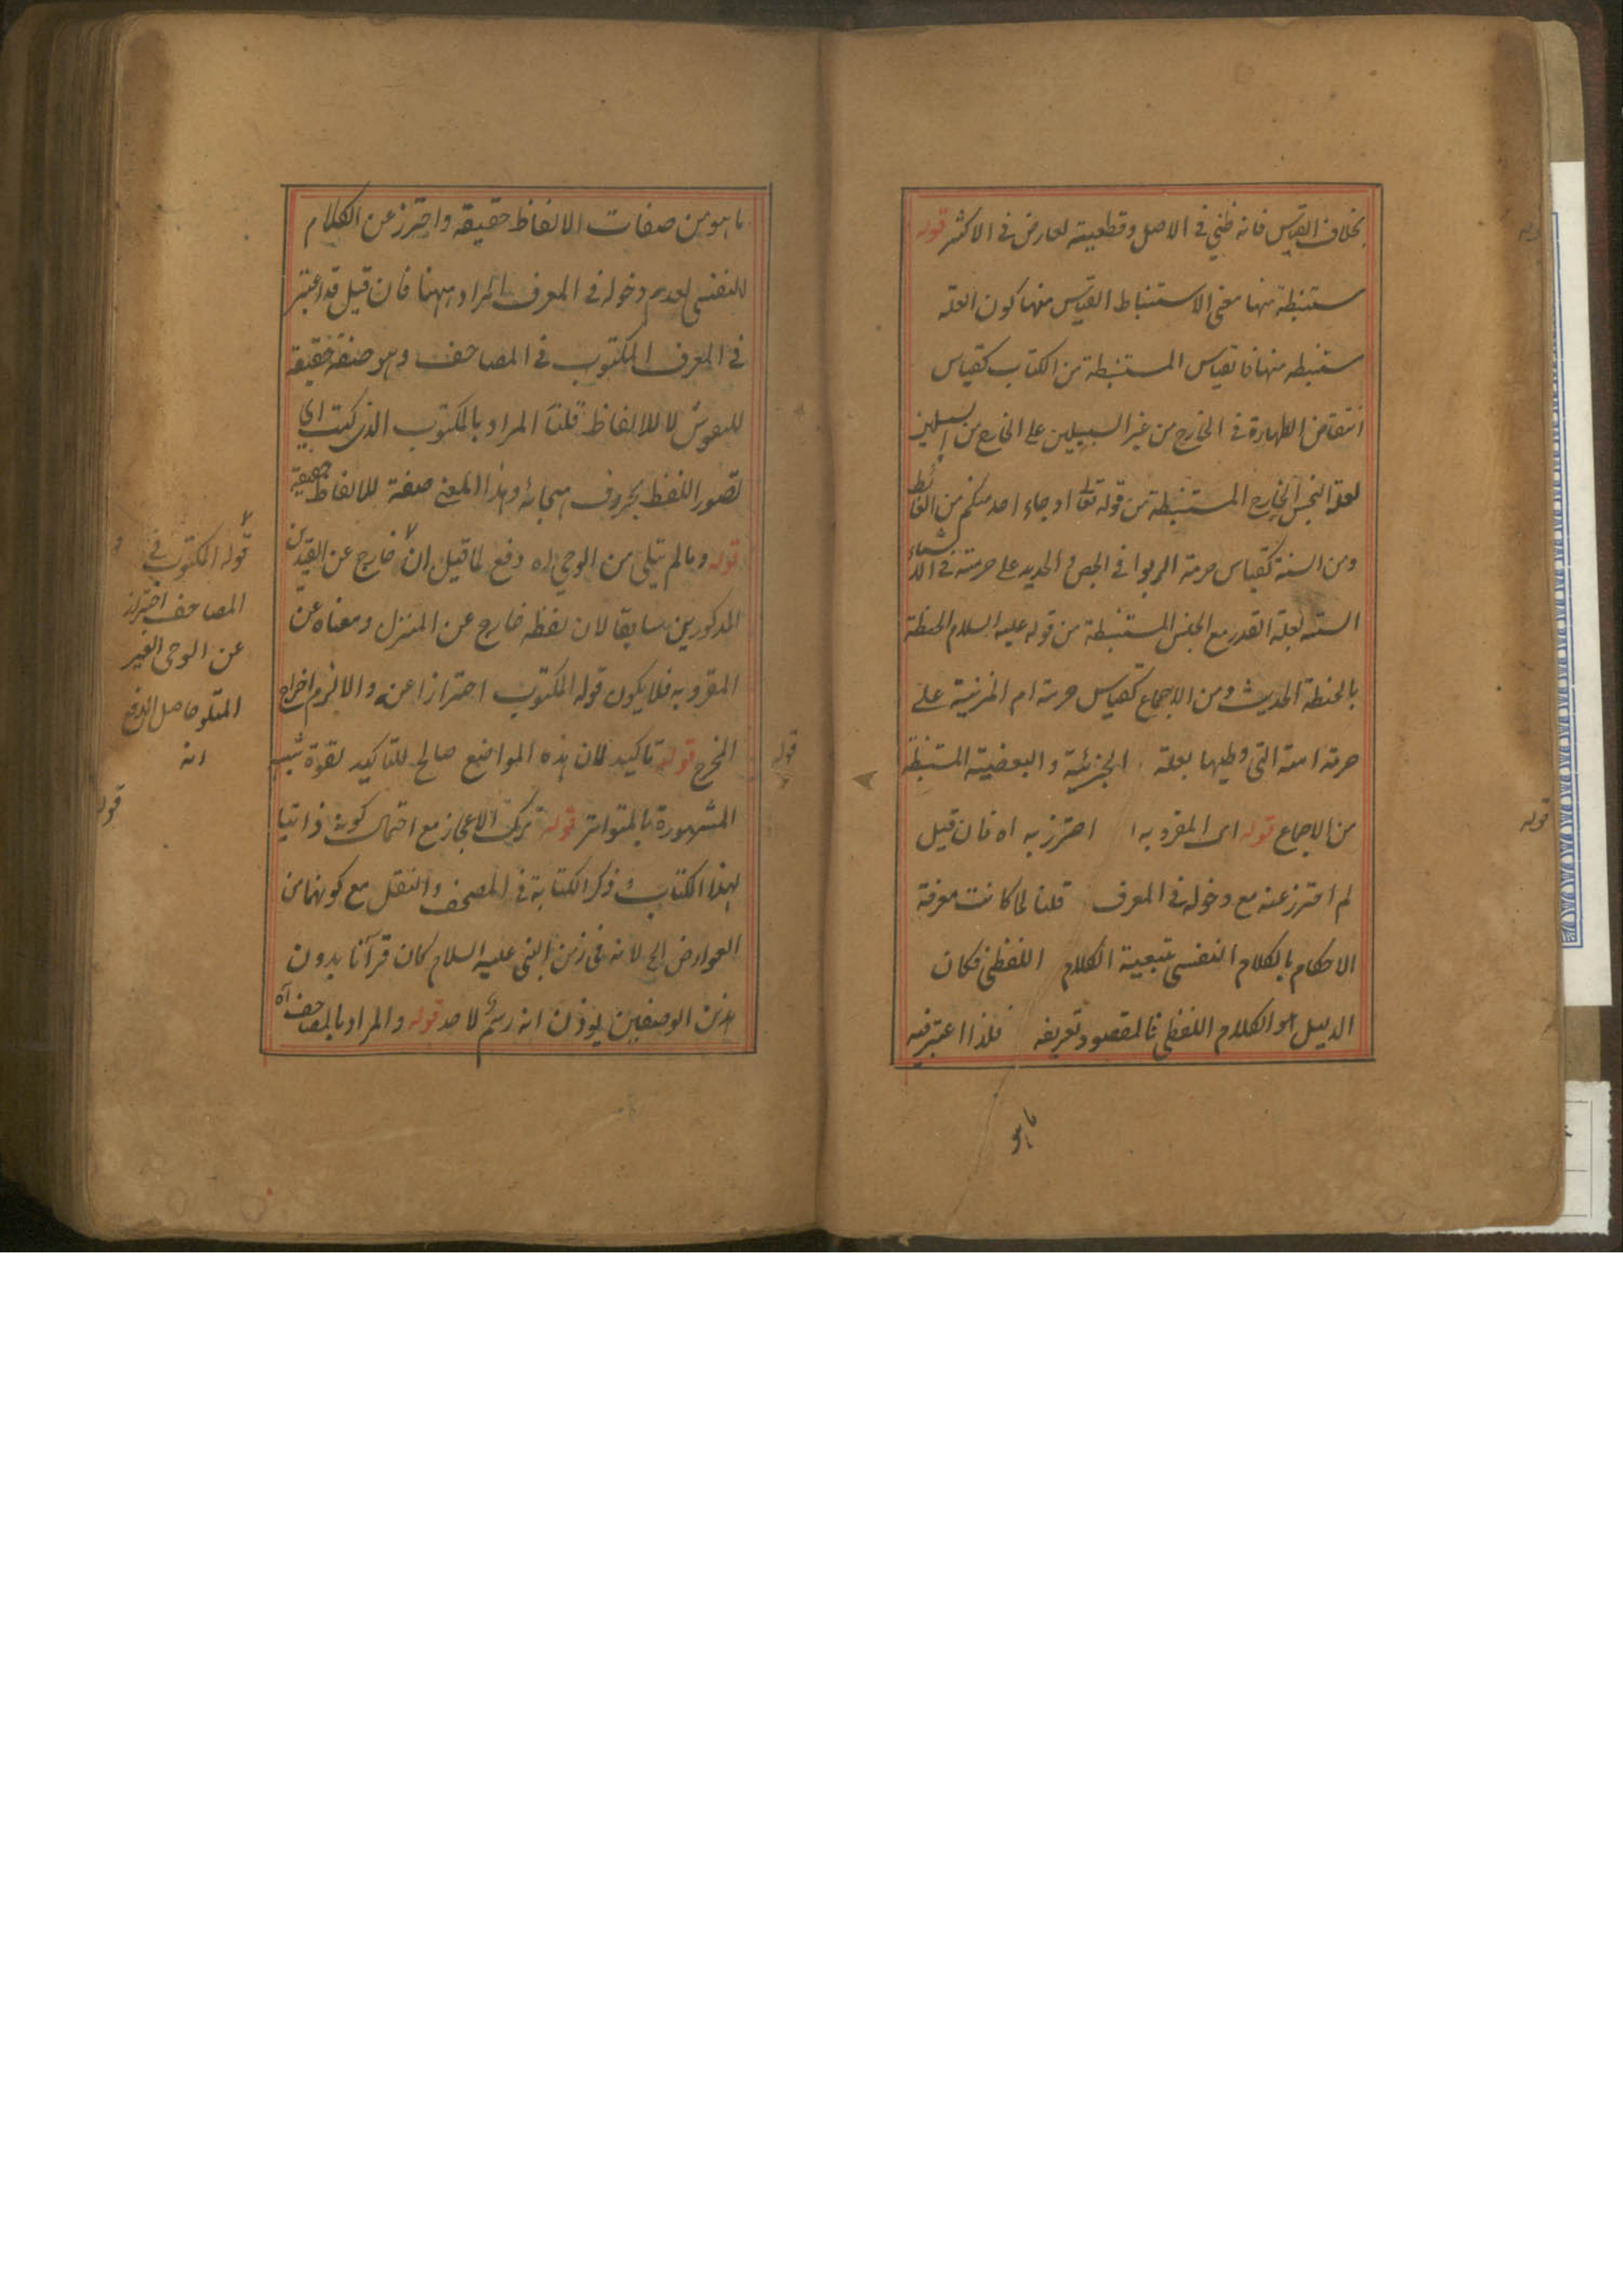 بخلاف القياس فانه ظني في الاصل وقطعيته لعارض في الاكثر قوله
مستنبطة منها معنى الاستنباط القياس منها كون العلة
مستنبطه منها فالقياس المستنبطة من الكتاب كقياس
انتقاض الطهارة في الخارج من غير السبيلين على الخارج من السبيلين
لعلة النجس الخارج المستنبطة من قوله تعالى او جاء احد منكم من الغائط
ومن السنة كقياس حرمة الربوا في الجص والحديد على حرمته في الاشياء
الستة لعلة القدر مع الجنس المستنبطة من قوله عليه السلام الحنطة
بالحنطة الحديث ومن الاجماع كقياس حرمة ام المزنية على
حرمة امته التي وطيها بعلة الجزئية والبعضية المستنبطة
من الاجماع قوله اى المقرو به ا احترز به اه فان قيل
لم احترز عنه مع دخوله في المعرف قلنا لما كانت معرفة
الاحكام بالكلام النفسي بتبعية الكلام اللفظي فكان
الدليل هو الكلام اللفظي فالمقصود تعريفه فلذا اعتبر فيه
ما هو
قوله
ما هو من صفات الالفاظ حقيقة واحترز عن الكلام
النفسي لعدم دخوله في المعرف المراد ههنا فان قيل قد اعتبر
في المعرف المكتوب في المصاحف وهو صفة حقيقة
للنقوش لا للالفاظ قلنا المراد بالمكتوب الذي كتب اي
تصور اللفظ بحروف هجائه وهذا المعنى صفة للالفاظ حقيقة
قوله وما لم يتلى من الوحي اه دفع لما قيل ان خارج عن القيدين
المذكورين سابقا لان لفظه خارج عن المنزل ومعناه عن
المقرو به فلا يكون قوله المكتوب احترازا عنه والا لزم اخراج
المخرج قوله تاكيد لان هذه المواضع صالح للتاكيد لقوة شبه
المشهورة بالمتواتر قوله ترك الاعجاز مع احتمال كونه ذاتيا
لهذا الكتاب وذكر الكتابة في المصحف والنقل مع كونهما من
العوارض الخ لانه في زمن النبي عليه السلام كان قرآنا بدون
هذين الوصفين يوذن انه رسم لا حد قوله والمراد بالمصاحف اه
قوله المكتوب في
المصاحف احتراز
عن الوحي الغير
المتلو حاصل الدفع
انه
قوله
قوله